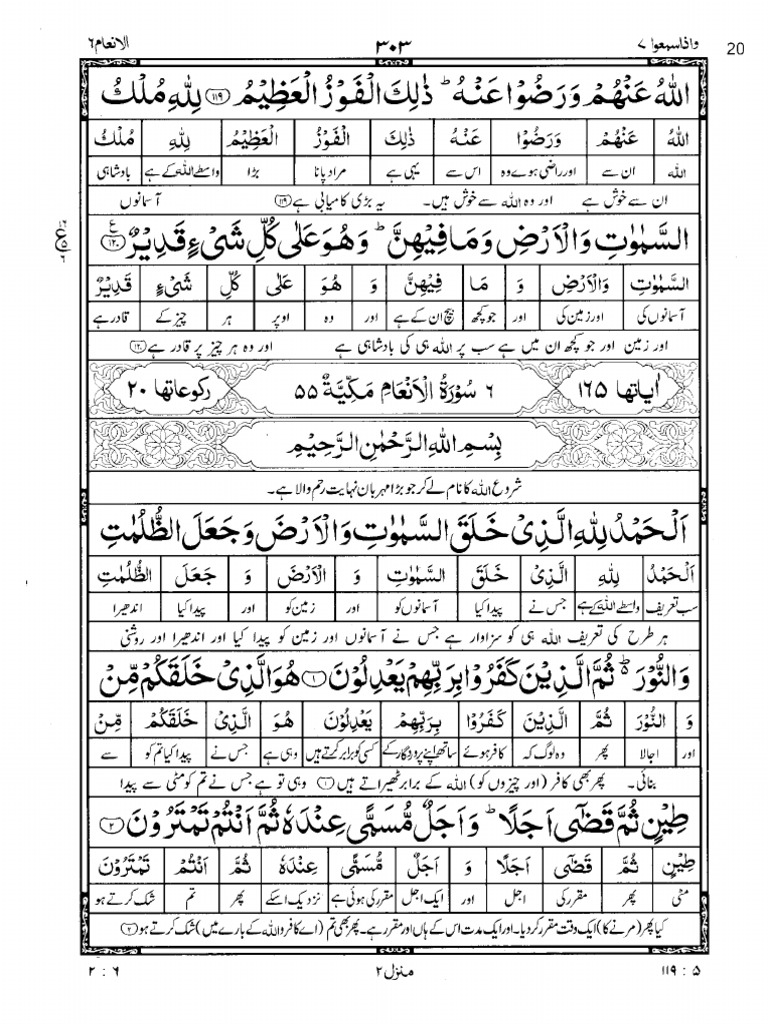 الانعام ٦ ٣٠٣ واذاسمعوا ٧ 20
اللّٰهُ عَنْهُمْ وَرَضُوْا عَنْهُ ؕ ذٰلِكَ الْفَوْزُ الْعَظِيْمُ ﴿١١٩﴾ لِلّٰهِ مُلْكُ
اللّٰهُ عَنْهُمْ وَرَضُوْا عَنْهُ ذٰلِكَ الْفَوْزُ الْعَظِيْمُ لِلّٰهِ مُلْكُ
اللہ ان سے اور راضی ہوے وہ اس سے یہی ہے مراد پانا بڑا واسطے اللہ کے ہے بادشاہی
ان سے خوش ہے اور وہ اللہ سے خوش ہیں۔ یہ بڑی کامیابی ہے ﴿١١٩﴾ آسمانوں
السَّمٰوٰتِ وَالْاَرْضِ وَمَا فِيْهِنَّ ؕ وَهُوَ عَلٰى كُلِّ شَىْءٍ قَدِيْرٌ ﴿١٢٠﴾ ع
السَّمٰوٰتِ وَالْاَرْضِ وَ مَا فِيْهِنَّ وَ هُوَ عَلٰى كُلِّ شَىْءٍ قَدِيْرٌ
آسمانوں کی اور زمین کی اور جو کچھ بیچ ان کے ہے اور وہ اوپر ہر چیز کے قادر ہے
اور زمین اور جو کچھ ان میں ہے سب پر اللہ ہی کی بادشاہی ہے اور وہ ہر چیز پر قادر ہے ﴿١٢٠﴾
اٰياتها ١٦٥ ٦ سُوْرَةُ الْاَنْعَامِ مَكِّيَّةٌ ٥٥ ركوعاتها ٢٠
بِسْمِ اللّٰهِ الرَّحْمٰنِ الرَّحِيْمِ
شروع اللہ کا نام لے کر جو بڑا مہربان نہایت رحم والا ہے۔
اَلْحَمْدُ لِلّٰهِ الَّذِىْ خَلَقَ السَّمٰوٰتِ وَالْاَرْضَ وَجَعَلَ الظُّلُمٰتِ
اَلْحَمْدُ لِلّٰهِ الَّذِىْ خَلَقَ السَّمٰوٰتِ وَ الْاَرْضَ وَ جَعَلَ الظُّلُمٰتِ
سب تعریف واسطے اللہ کے ہے جس نے پیدا کیا آسمانوں کو اور زمین کو اور پیدا کیا اندھیرا
ہر طرح کی تعریف اللہ ہی کو سزاوار ہے جس نے آسمانوں اور زمین کو پیدا کیا اور اندھیرا اور روشنی
وَالنُّوْرَ ؕ ثُمَّ الَّذِيْنَ كَفَرُوْا بِرَبِّهِمْ يَعْدِلُوْنَ ﴿١﴾ هُوَ الَّذِىْ خَلَقَكُمْ مِّنْ
وَ النُّوْرَ ثُمَّ الَّذِيْنَ كَفَرُوْا بِرَبِّهِمْ يَعْدِلُوْنَ هُوَ الَّذِىْ خَلَقَكُمْ مِّنْ
اور اجالا پھر وہ لوگ کہ کافر ہوئے ساتھ اپنے پروردگار کے کسی کو برابر کرتے ہیں وہی ہے جس نے پیدا کیا تم کو سے
بنائی۔ پھر بھی کافر (اور چیزوں کو) اللہ کے برابر ٹھیراتے ہیں ﴿١﴾ وہی تو ہے جس نے تم کو مٹی سے پیدا
طِيْنٍ ثُمَّ قَضٰۤى اَجَلًا ؕ وَاَجَلٌ مُّسَمًّى عِنْدَهٗ ثُمَّ اَنْتُمْ تَمْتَرُوْنَ ﴿٢﴾
طِيْنٍ ثُمَّ قَضٰۤى اَجَلًا وَ اَجَلٌ مُّسَمًّى عِنْدَهٗ ثُمَّ اَنْتُمْ تَمْتَرُوْنَ
مٹی پھر مقرر کی اجل اور ایک اجل مقرر کی ہوئی ہے نزدیک اسکے پھر تم شک کرتے ہو
کیا پھر (مرنے کا) ایک وقت مقرر کر دیا۔ اور ایک مدت اس کے ہاں اور مقرر ہے۔ پھر بھی تم (اے کافرو اللہ کے بارے میں) شک کرتے ہو ﴿٢﴾
٢ : ٦ منزل ٢ ١١٩ : ٥